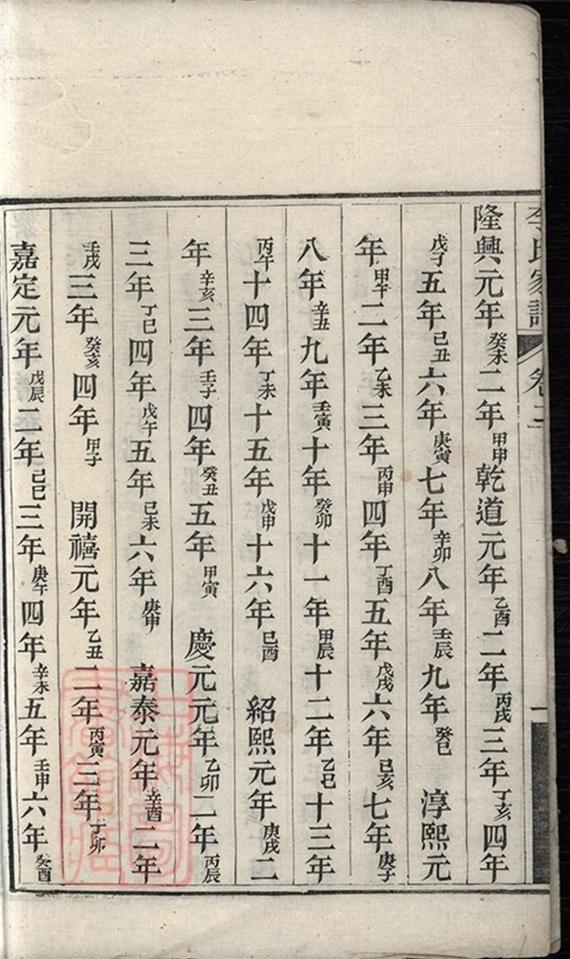 李氏家譜 卷三
隆興元年癸未二年甲申乾道元年乙酉二年丙戌三年丁亥四年
戊子五年己丑六年庚寅七年辛卯八年壬辰九年癸巳 淳熙元
年甲午二年乙未三年丙申四年丁酉五年戊戌六年己亥七年庚子
八年辛丑九年壬寅十年癸卯十一年甲辰十二年乙巳十三年
丙午十四年丁未十五年戊申十六年己酉 紹熙元年庚戌二
年辛亥三年壬子四年癸丑五年甲寅 慶元元年乙卯二年丙辰
三年丁巳四年戊午五年己未六年庚申 嘉泰元年辛酉二年
壬戌三年癸亥四年甲子 開禧元年乙丑二年丙寅三年丁卯
嘉定元年戊辰二年己巳三年庚午四年辛未五年壬申六年癸酉